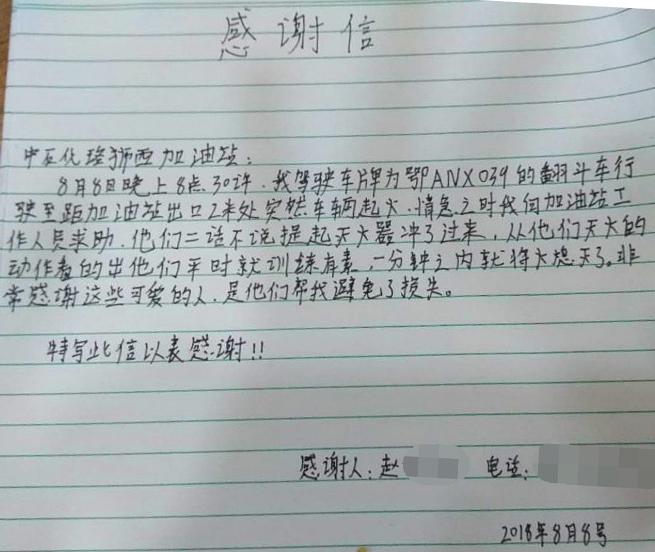 感谢信
中石化珞狮西加油站：
8月8日晚上8点30许，我驾驶车牌为鄂ANX039的翻斗车行
驶至距加油站出口2米处突然车辆起火，情急之时我向加油站工
作人员求助，他们二话不说提起灭火器冲了过来，从他们灭火的
动作看的出他们平时就训练有素，一分钟之内就将火熄灭了。非
常感谢这些可爱的人，是他们帮我避免了损失。
特写此信以表感谢!!
感谢人：赵 电话：
2018年8月8号